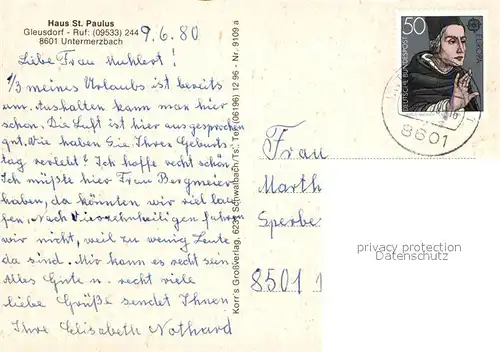 Haus St. Paulus
Gleusdorf - Ruf: (09533) 244
8601 Untermerzbach
9.6.80
Liebe Frau Muhlert!
1/3 meines Urlaubs ist bereits
um. Aushalten kann man hier
schon. Die Luft ist hier ausgesprochen
gut. Wie haben Sie Ihren Geburts
tag verlebt? Ich hoffe recht schön.
Ich müßte hier Frau Bergmeier
haben, da könnten wir viel lau
fen. Nach Vierzehnheiligen fahren
wir nicht, weil zu wenig Leute
da sind. Mir kann es recht sein.
Alles Gute u. recht viele
liebe Grüße sendet Ihnen
Ihre Elisabeth Nothard
Korr's Großverlag, 6231 Schwalbach/Ts., Tel. (06196) 12 96 - Nr. 9109 a
50
EUROPA
DEUTSCHE BUNDESPOST
8601
Frau
Marth
Sperbe
8501 1
privacy protection
AnsichtskartenCenter